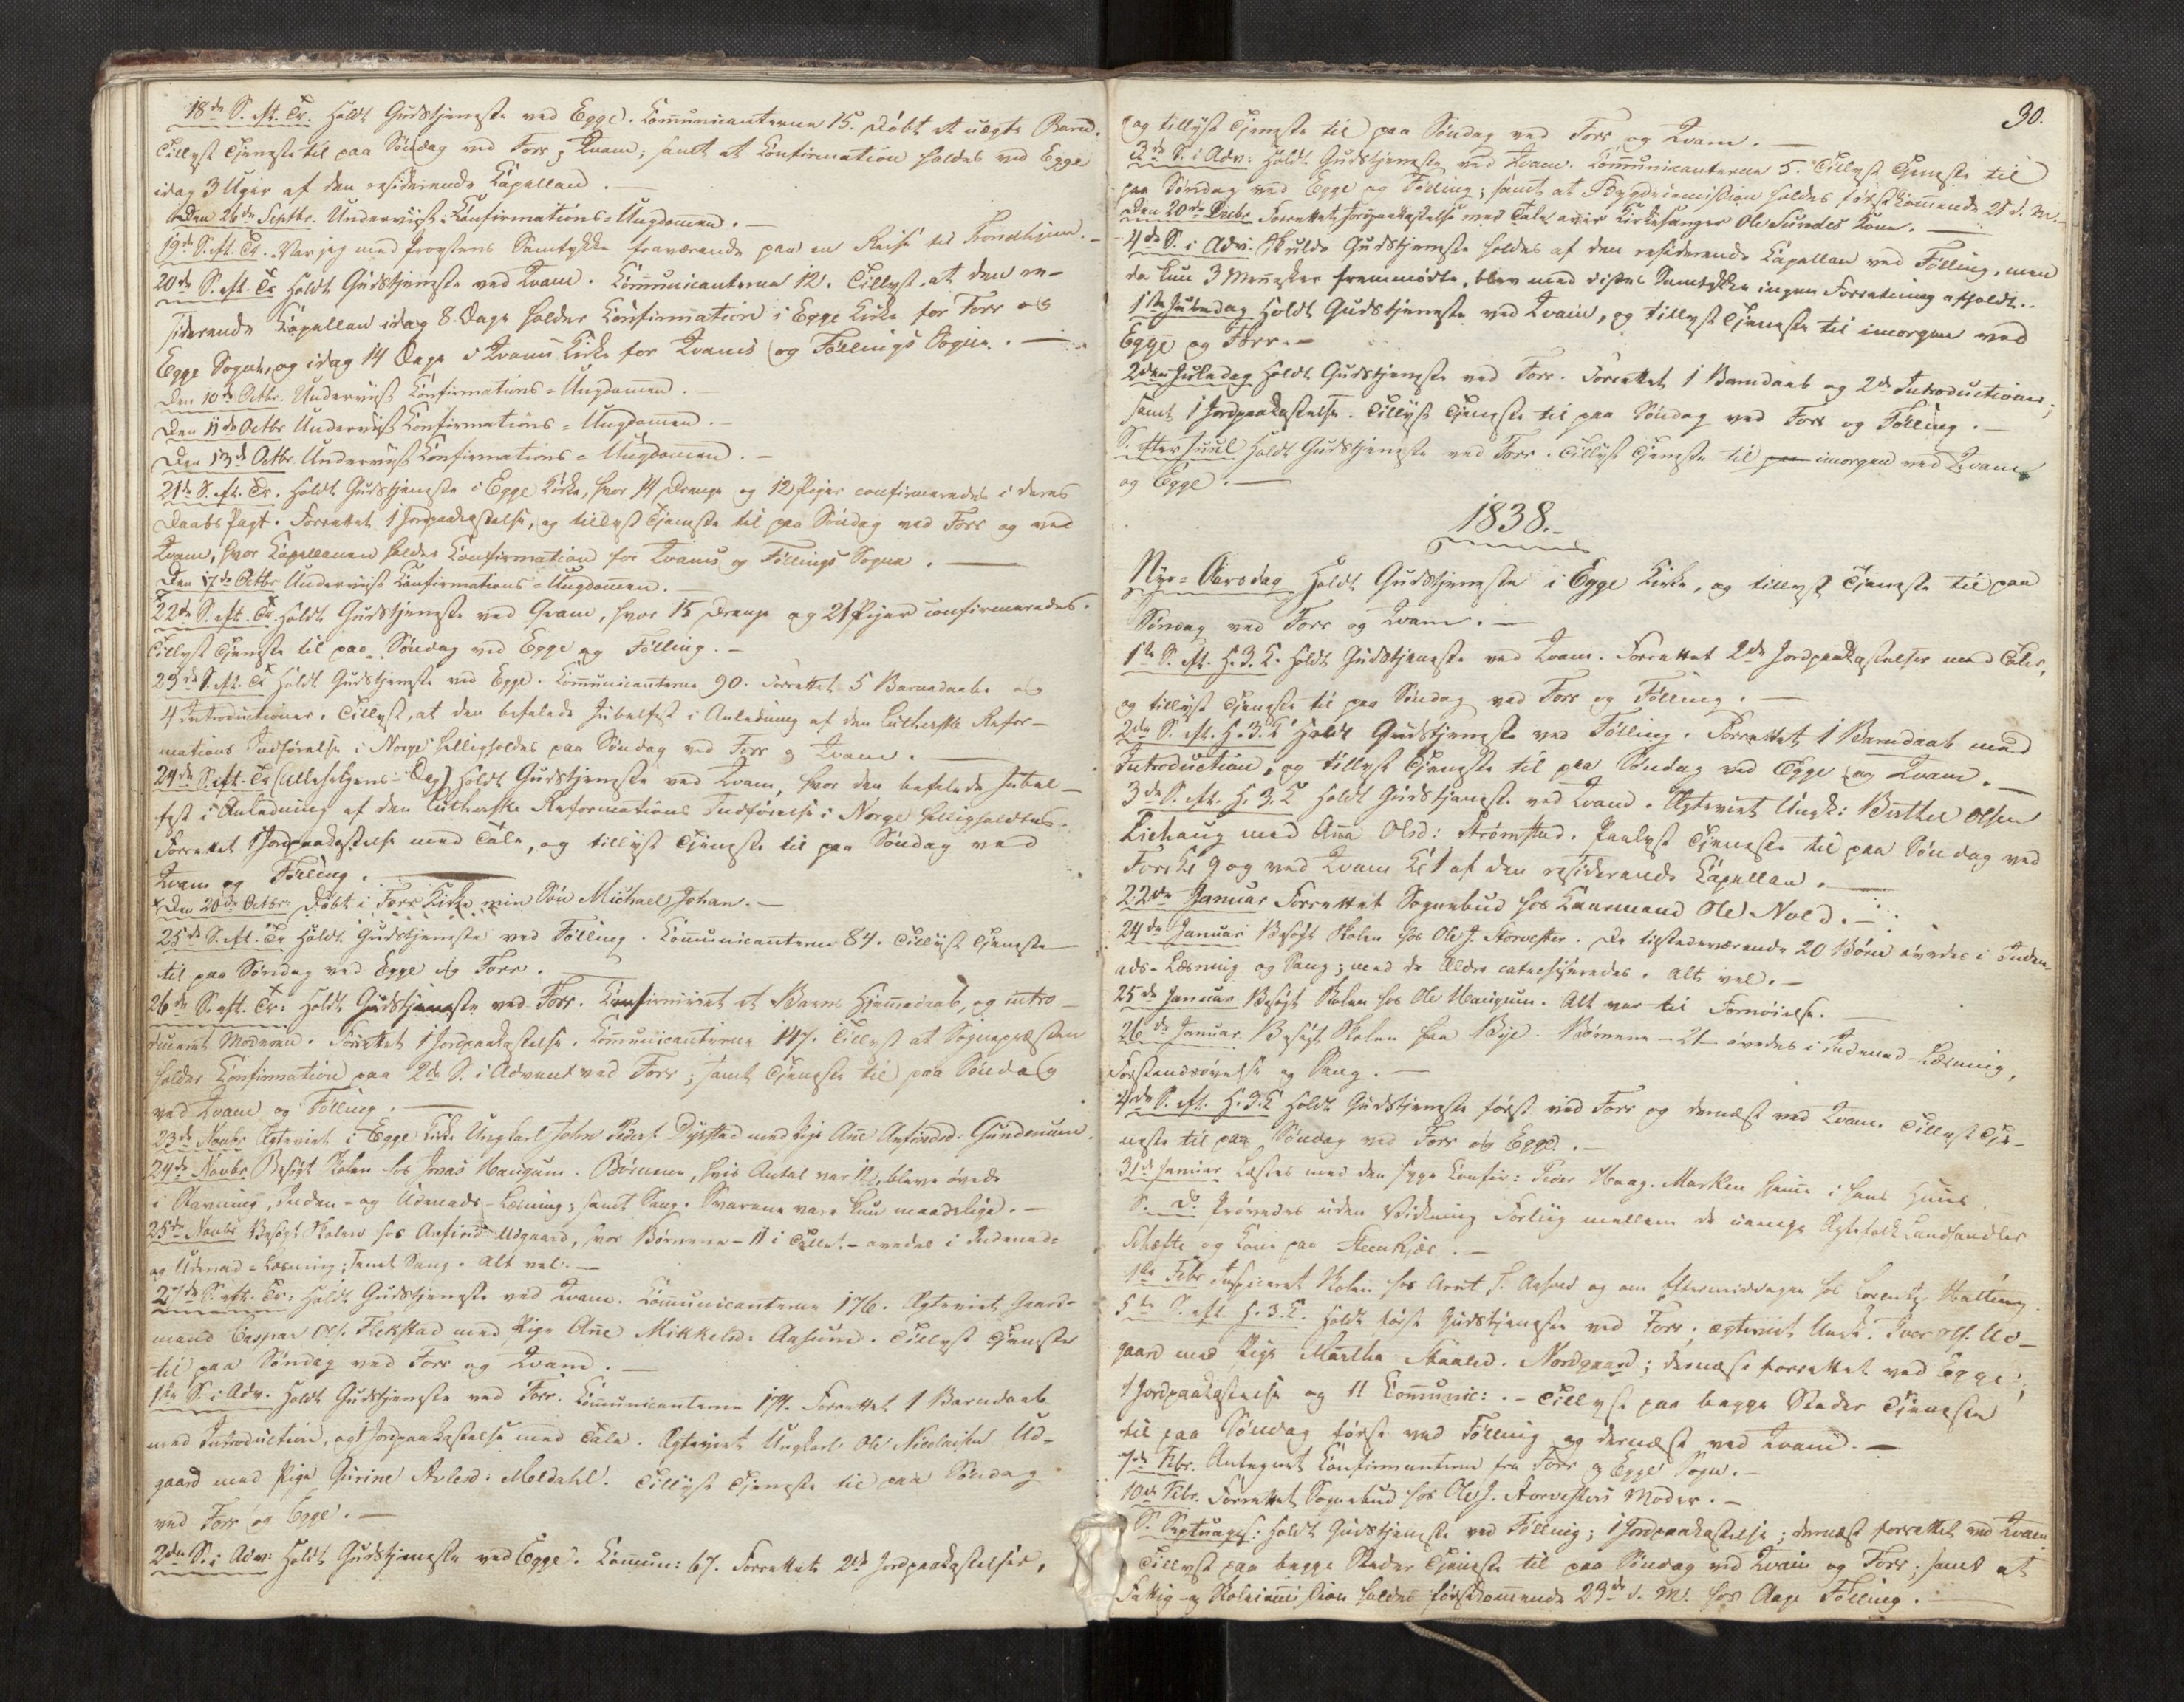 18de S. eft. Tr. Holdt Gudstjeneste ved Egge. Communicanterne 15. Døbt et uægte Barn.
Tillyst Tjeneste til paa Søndag ved Forr og Qvam; samt at Confirmation holdes ved Egge
idag 3 Uger af den residerende Kapellan. —
Den 26de Septbr. Underviist Confirmations-Ungdommen. —
19de S. eft. Tr. Var jeg med Provstens Samtykke fraværende paa en Reise til Trondhjem. —
20de S. eft. Tr. Holdt Gudstjeneste ved Qvam. Communicanterne 12. Tillyst, at den re-
siderende Kapellan idag 8 Dage holder Confirmation i Egge Kirke for Forr og
Egge Sogne, og idag 14 Dage i Qvams Kirke for Qvams og Føllings Sogne. —
Den 10de Octbr. Underviist Confirmations-Ungdommen. —
Den 11de Octbr. Underviist Confirmations-Ungdommen. —
Den 13de Octbr. Underviist Confirmations-Ungdommen. —
21de S. eft. Tr. Holdt Gudstjeneste i Egge Kirke, hvor 14 Drenge og 12 Piger confirmeredes i deres
Daabs Pagt. Forrettet 1 Jordpaakastelse, og tillyst Tjeneste til paa Søndag ved Forr og ved
Qvam, hvor Kapellanen holder Confirmation for Qvams og Føllings Sogne. —
Den 17de Octbr. Underviist Confirmations-Ungdommen. —
22de S. eft. Tr. Holdt Gudstjeneste ved Qvam, hvor 15 Drenge og 21 Piger confirmeredes.
Tillyst Tjeneste til paa Søndag ved Egge og Følling. —
23de S. eft. Tr. Holdt Gudstjeneste ved Egge. Communicanterne 90. Forrettet 5 Barnedaabe og
4 Introductioner. Tillyst, at den befalede Jubelfest i Anledning af den Lutherske Refor-
mations Indførelse i Norge helligholdes paa Søndag ved Forr og Qvam. —
24de S. eft. Tr. (Allehelgens-Dag) Holdt Gudstjeneste ved Qvam, hvor den befalede Jubel-
fest i Anledning af den Lutherske Reformations Indførelse i Norge helligholdtes.
Forrettet 1 Jordpaakastelse med Tale, og tillyst Tjeneste til paa Søndag ved
Qvam og Følling. —
x Den 20de Octbr. Døbt i Forr Kirke min Søn Michael Johan. —
25de S. eft. Tr. Holdt Gudstjeneste ved Følling. Communicanterne 84. Tillyst Tjeneste
til paa Søndag ved Egge og Forr. —
26de S. eft. Tr. Holdt Gudstjeneste ved Forr. Confirmeret et Barns Hjemmedaab, og intro-
duceret Moderen. Forrettet 1 Jordpaakastelse. Communicanterne 147. Tillyst at Sognepræsten
holder Confirmation paa 2de S. i Advent ved Forr; samt Tjeneste til paa Søndag
ved Qvam og Følling. —
23de Novbr. Ægteviet i Egge Kirke Ungkarl John Peders. Dyrstad med Pige Ane Anfindsd: Gundenum.
24de Novbr. Besøgt Skolen hos Jonas Haugum. Børnene, hvis Antal var 12, bleve øvede
i Stavning, Inden- og Udenads-Læsning; samt Sang. Svarene vare kun maadelige. —
25de Novbr. Besøgt Skolen hos Anfind Udgaard, hvor Børnene - 11 i Tallet - øvedes i Indenad-
og Udenad-Læsning; samt Sang. Alt vel. —
27de S. eft. Tr. Holdt Gudstjeneste ved Qvam. Communicanterne 176. Ægteviet Gaard-
mand Caspar Ols. Flekstad med Pige Ane Mikkelsd: Aasum. Tillyst Tjeneste
til paa Søndag ved Forr og Qvam. —
1ste S. i Adv. Holdt Gudstjeneste ved Forr. Communicanterne 171. Forrettet 1 Barnedaab
med Introduction, og 1 Jordpaakastelse med Tale. Ægteviet Ungkarl Ole Nicolaisen Ud-
gaard med Pige Gurine Arlesd: Meldahl. Tillyst Tjeneste til paa Søndag
ved Forr og Egge. —
2den S. i Adv: Holdt Gudstjeneste ved Egge. Commun: 67. Forrettet 2de Jordpaakastelser,
30.
og tillyst Tjeneste til paa Søndag ved Forr og Qvam. —
3de S. i Adv: Holdt Gudstjeneste ved Qvam. Communicanterne 5. Tillyst Tjeneste til
paa Søndag ved Egge og Følling; samt at Bygdecommission holdes førstkommende 21 d. M. —
Den 20de Decbr. Forrettet Jordpaakastelse med Tale over Kirkesanger Ole Sundes Kone. —
4de S. i Adv. Skulde Gudstjeneste holdes af den residerende Kapellan ved Følling, men
da kun 3 Mennesker fremmødte, blev med disses Samtykke ingen Forretning afholdt. —
1ste Juledag Holdt Gudstjeneste ved Qvam, og tillyst Tjeneste til imorgen ved
Egge og Forr. —
2den Juledag Holdt Gudstjeneste ved Forr. Forrettet 1 Barndaab og 2de Introductioner;
samt 1 Jordpaakastelse. Tillyst Tjeneste til paa Søndag ved Forr og Følling. —
S. efter Juul Holdt Gudstjeneste ved Forr. Tillyst Tjeneste til paa imorgen ved Qvam
og Egge. —
1838. —
Nyt-Aarsdag Holdt Gudstjeneste i Egge Kirke, og tillyst Tjeneste til paa
Søndag ved Forr og Qvam. —
1ste S. eft. H. 3. K. Holdt Gudstjeneste ved Qvam. Forrettet 2de Jordpaakastelser med Taler,
og tillyst Tjeneste til paa Søndag ved Forr og Følling. —
2den S. eft. H. 3. K. Holdt Gudstjeneste ved Følling. Forrettet 1 Barnedaab med
Introduction, og tillyst Tjeneste til paa Søndag ved Egge og Qvam. —
3de S. eft. H. 3. K. Holdt Gudstjeneste ved Qvam. Ægteviet Ungk: Birthel Olsen
Liehaug med Ane Olsd: Strømstad. Paalyst Tjeneste til paa Søndag ved
Forr Kl 9 og ved Qvam Kl 1 af den residerende Kapellan. —
22de Januar Forrettet Sognebud hos Kaarmand Ole Nold. —
24de Januar Besøgt Skolen hos Ole J. Storvester. De tilstedeværende 20 Børn øvedes i Inden-
ads-Læsning og Sang; med de Ældre catechiseredes. Alt vel. —
25de Januar Besøgt Skolen hos Ole Haugum. Alt var til Fornøielse. —
26de Januar. Besøgt Skolen paa Bye. Børnene - 21 - øvedes i Indenad-Læsning,
Forstandsøvelse og Sang. —
4de S. eft. H. 3. K. Holdt Gudstjeneste først ved Forr og dernæst ved Qvam. Tillyst Tje-
neste til paa Søndag ved Forr og Egge. —
31de Januar Læstes med den syge Confir: Peder Haag. Marken hjemme i hans Huus.
S. D. Prøvedes uden Virkning Forliig mellem de uenige Ægtefolk Landhandler
Schefte og Kone paa Steenkjær. —
1ste Febr. Inspiceret Skolen hos Arnt J. Aasud og om Eftermiddagen hos Lorentz Halling.
5te S. eft. H. 3. K. Holdt først Gudstjeneste ved Forr; ægteviet Ungk. Iver Ols. Ud-
gaard med Pige Martha Staalsd. Nordgaard; dernæst forrettet ved Egge;
1 Jordpaakastelse og 11 Communic: . — Tillyst paa begge Steder Tjeneste
til paa Søndag først ved Følling og dernæst ved Qvam. —
7de Febr. Antegnet Confirmanterne fra Forr og Egge Sogn. —
10de Febr. Forrettet Sognebud hos Ole J. Storvesters Moder. —
S. Septuages: Holdt Gudstjeneste ved Følling; 1 Jordpaakastelse; dernæst forrettet ved Qvam.
Tillyst paa begge Steder Tjeneste til paa Søndag ved Qvam og Forr; samt at
Fattig- og Skolecommission holdes førstkommende 23de d. M. hos Aage Følling. —